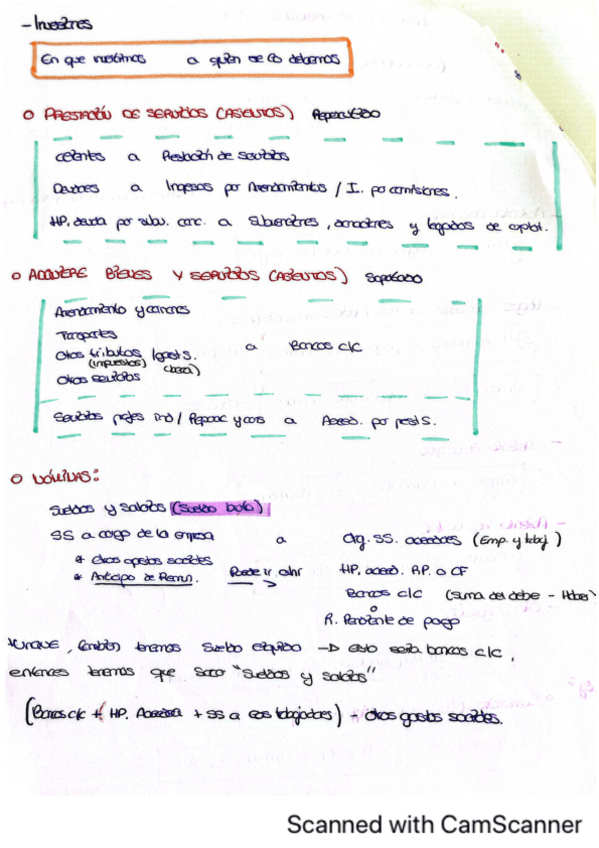 - Inversiones
En que invertimos a quien se lo debemos
O PRESTACIÓN DE SERVICIOS (ASIENTOS) Repercutido
clientes a Prestación de Servicios
Deudores a Ingresos por Arrendamientos / I. por comisiones.
HP, deuda por subv. conc. a Subvenciones, donaciones y legados de capital.
O ADQUIERE BIENES Y SERVICIOS (ASIENTOS) Soportado
Arrendamiento y canones
Transportes
Otros tributos / gast s.
(impuestos)
Otros servicios
a Bancos c/c
Servicios profes ind / Reparac y cons a Acreed. por prest s.
O NÓMINAS:
Sueldos y Salarios (Sueldo bruto)
SS a cargo de la empresa a Org. SS. acreedores (Emp. y trabaj)
* Otros gastos sociales
* Anticipo de Remun. Puede ir ahí
HP, acreed. RP. o CF
Bancos c/c (suma del debe - Haber)
o
R. Pendiente de pago
AUNQUE, también tenemos Sueldo líquido → esto sería bancos c/c,
entonces tenemos que sacar "Sueldos y salarios"
(Bancos c/c + HP. Acreedora + SS a cos trabajadores) - Otros gastos sociales.
Scanned with CamScanner